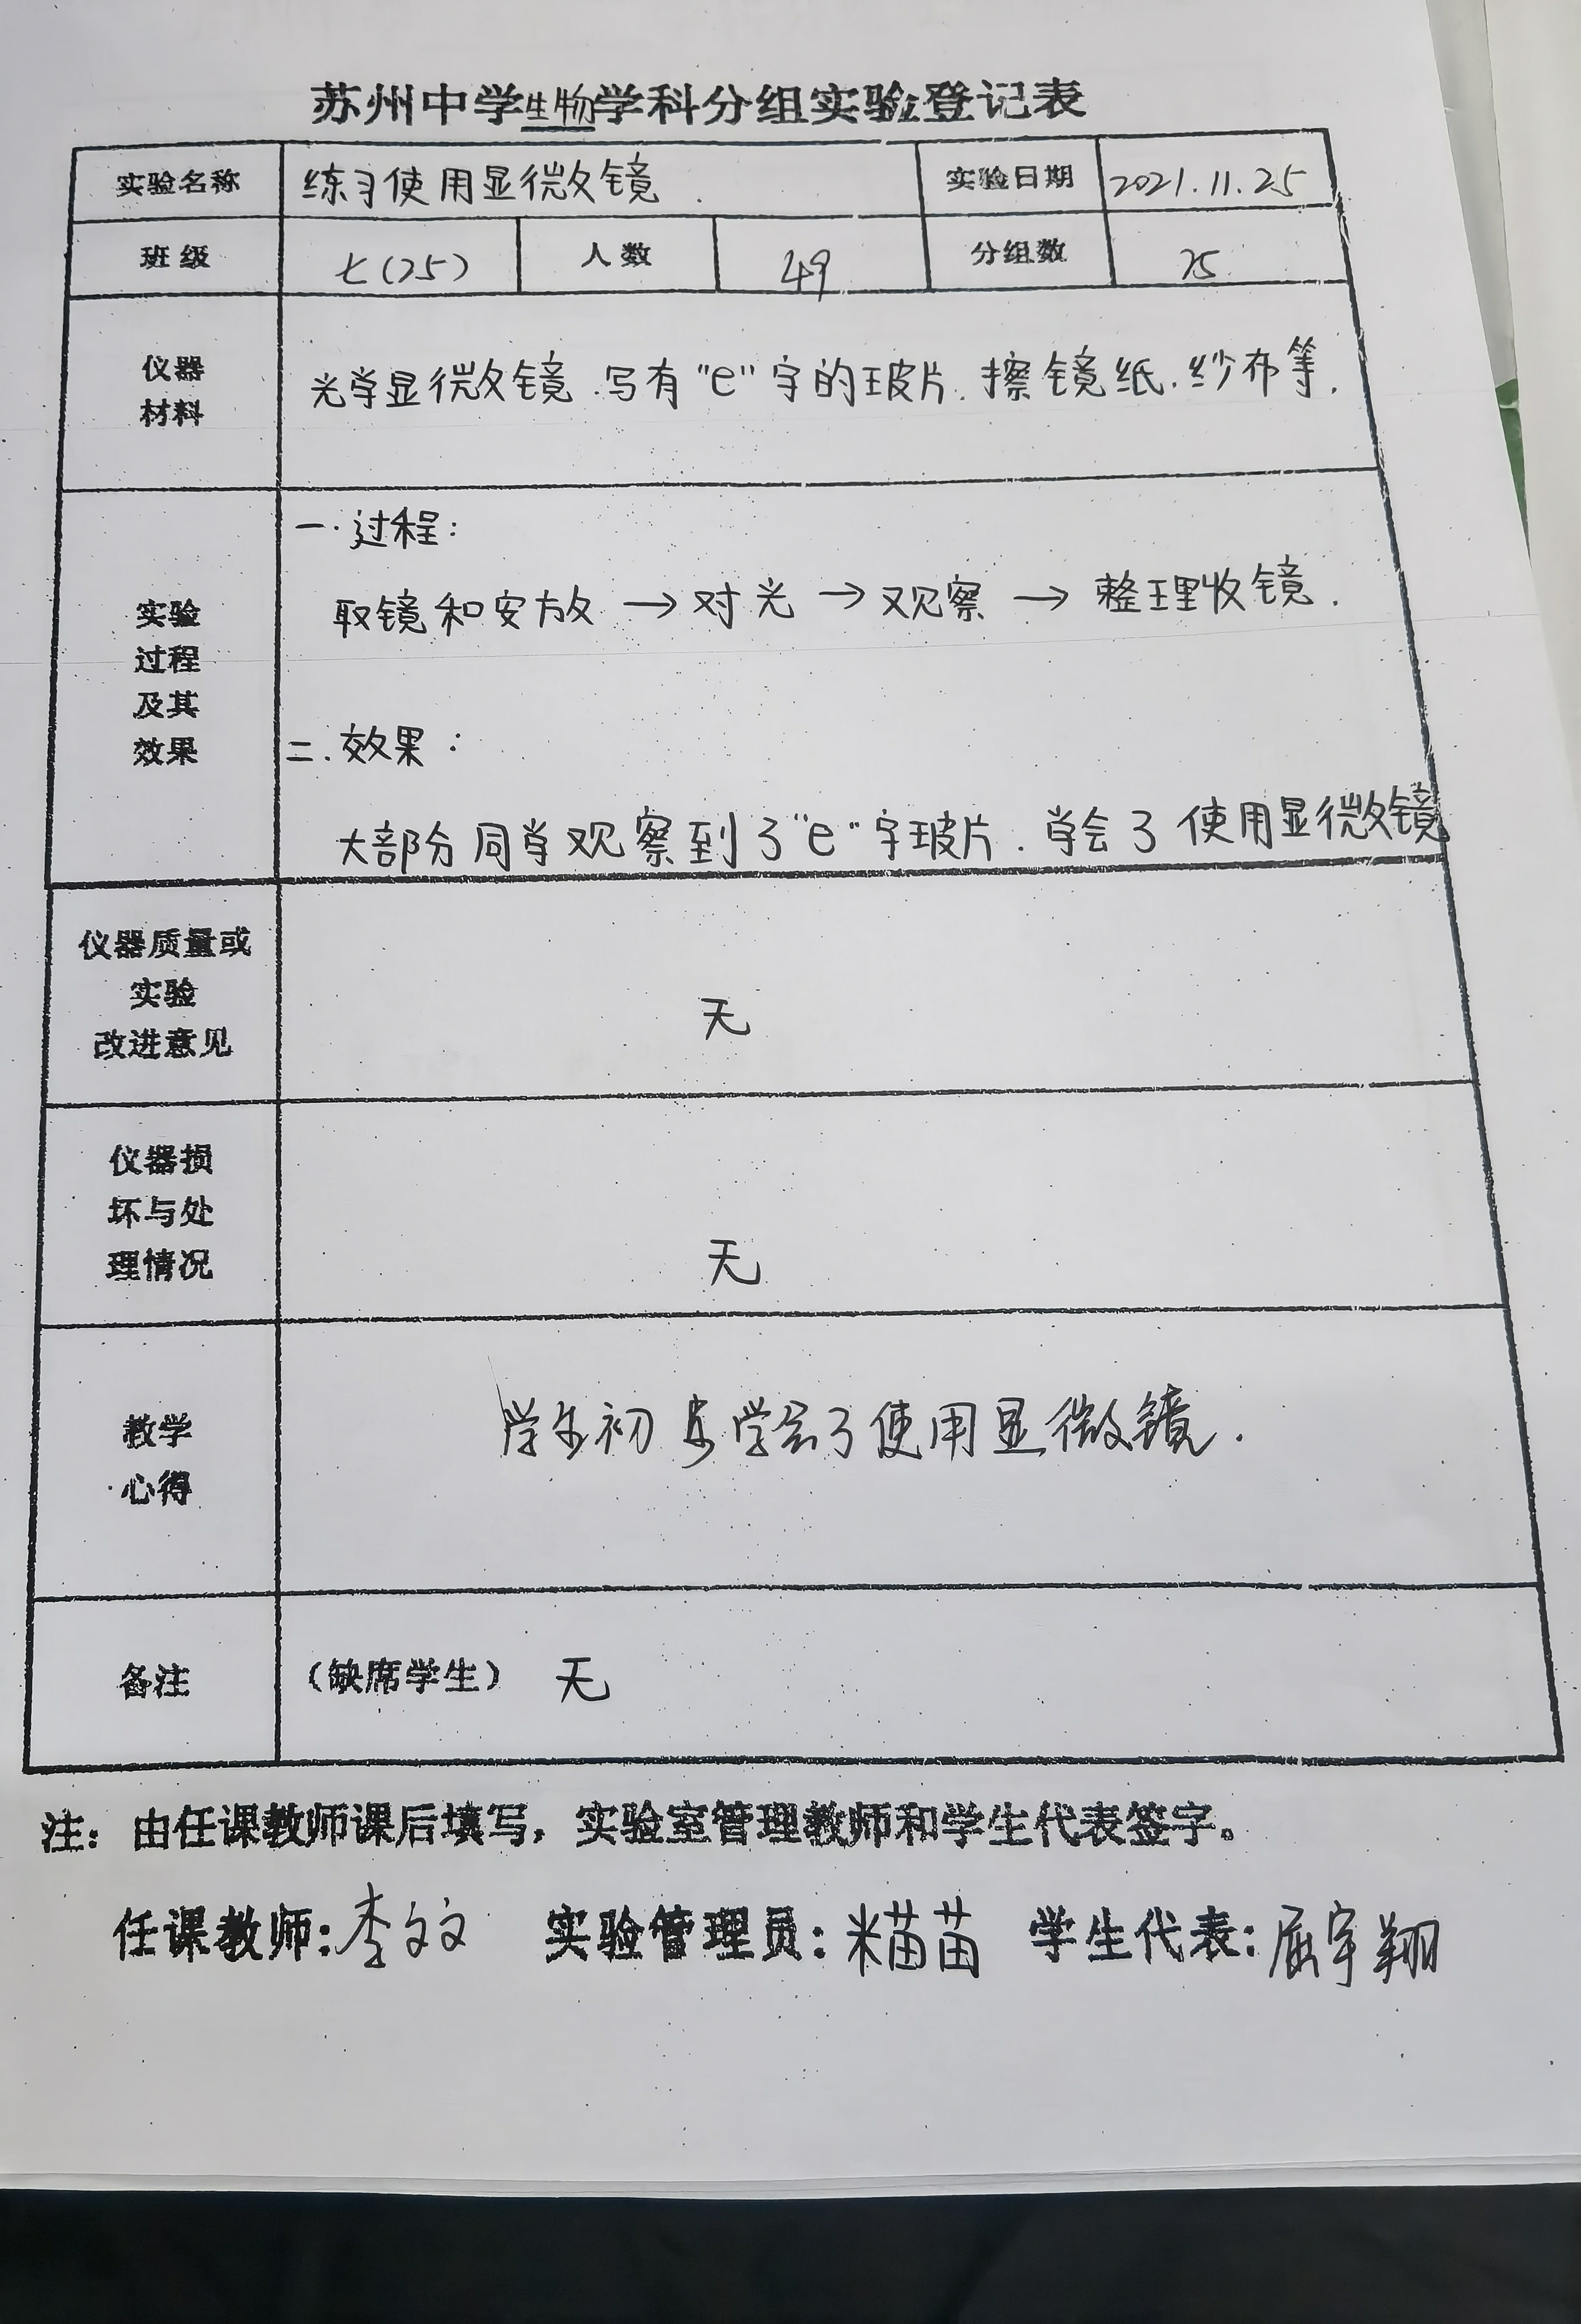 苏州中学生物学科分组实验登记表
实验名称 练习使用显微镜. 实验日期 2021.11.25
班级 七(25) 人数 49 分组数 25
仪器
材料
光学显微镜.写有"e"字的玻片.擦镜纸.纱布等.
实验
过程
及其
效果
一.过程:
取镜和安放→对光→观察→整理收镜.
二.效果:
大部分同学观察到了"e"字玻片.学会了使用显微镜
仪器质量或
实验
改进意见
无
仪器损
坏与处
理情况
无
教学
心得
学生初步学会了使用显微镜.
备注 (缺席学生) 无
注: 由任课教师课后填写, 实验室管理教师和学生代表签字。
任课教师:李文文 实验管理员:米苗苗 学生代表:屈宇翔